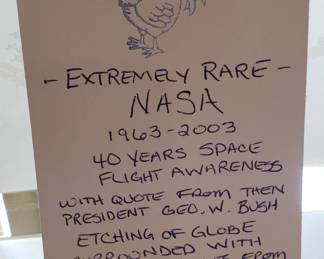 - EXTREMELY RARE -
NASA
1963-2003
40 YEARS SPACE
FLIGHT AWARENESS
WITH QUOTE FROM THEN
PRESIDENT GEO. W. BUSH
ETCHING OF GLOBE
SURROUNDED WITH
FROM